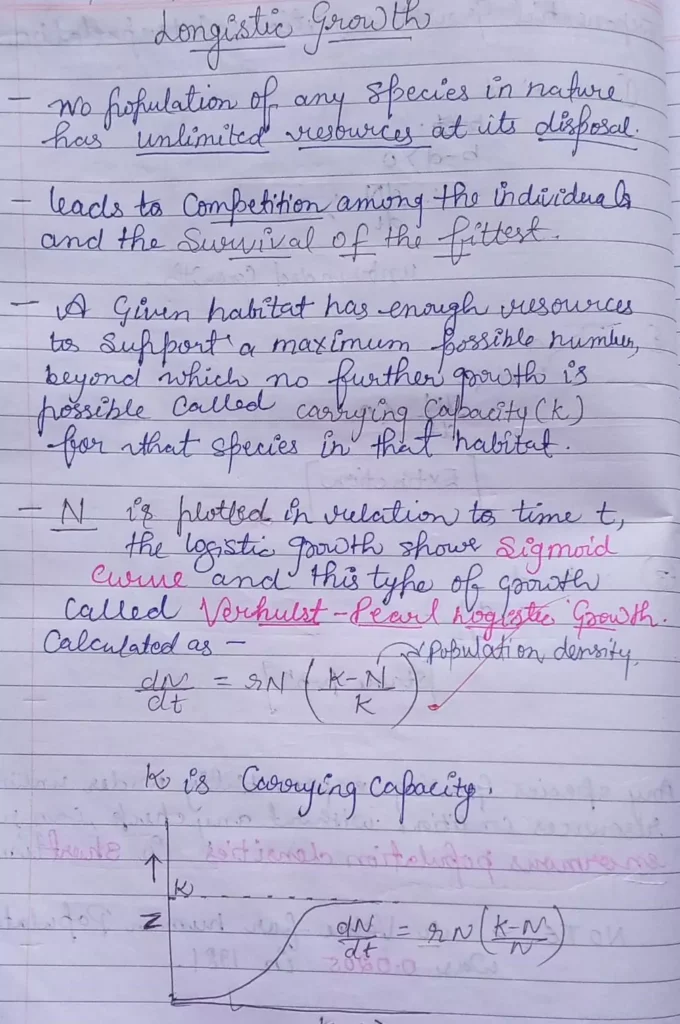 Longistic Growth
- No population of any species in nature
has unlimited resources at its disposal.
- leads to Competition among the individuals
and the Survival of the fittest.
- A Given habitat has enough resources
to Support a maximum possible number,
beyond which no further growth is
possible Called carrying Capacity (K)
for that species in that habitat.
- N is plotted in relation to time t,
the logistic growth shows Sigmoid
Curve and this type of growth
Called Verhulst-Pearl Logistic Growth.
Calculated as -
Population density.
dN/dt = rN (K-N/K)
K is Carrying Capacity.
↑
K
N
dN/dt = rN (K-N/N)